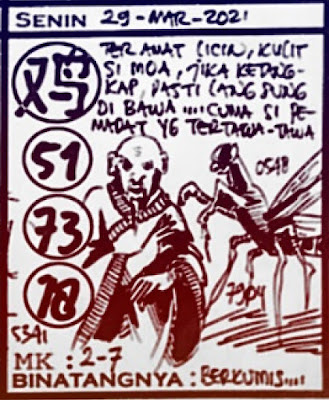 SENIN 29-MAR-2021
TER AMAT LICIN, KULIT
SI MOA, JIKA KETANG-
KAP, PASTI LANGSUNG
DI BAWA ..... CUMA SI PE-
MADAT YG TERTAWA-TAWA
鸡
51
73
18
0548
79104
5341
MK : 2-7
BINATANGNYA : BERKUMIS.....